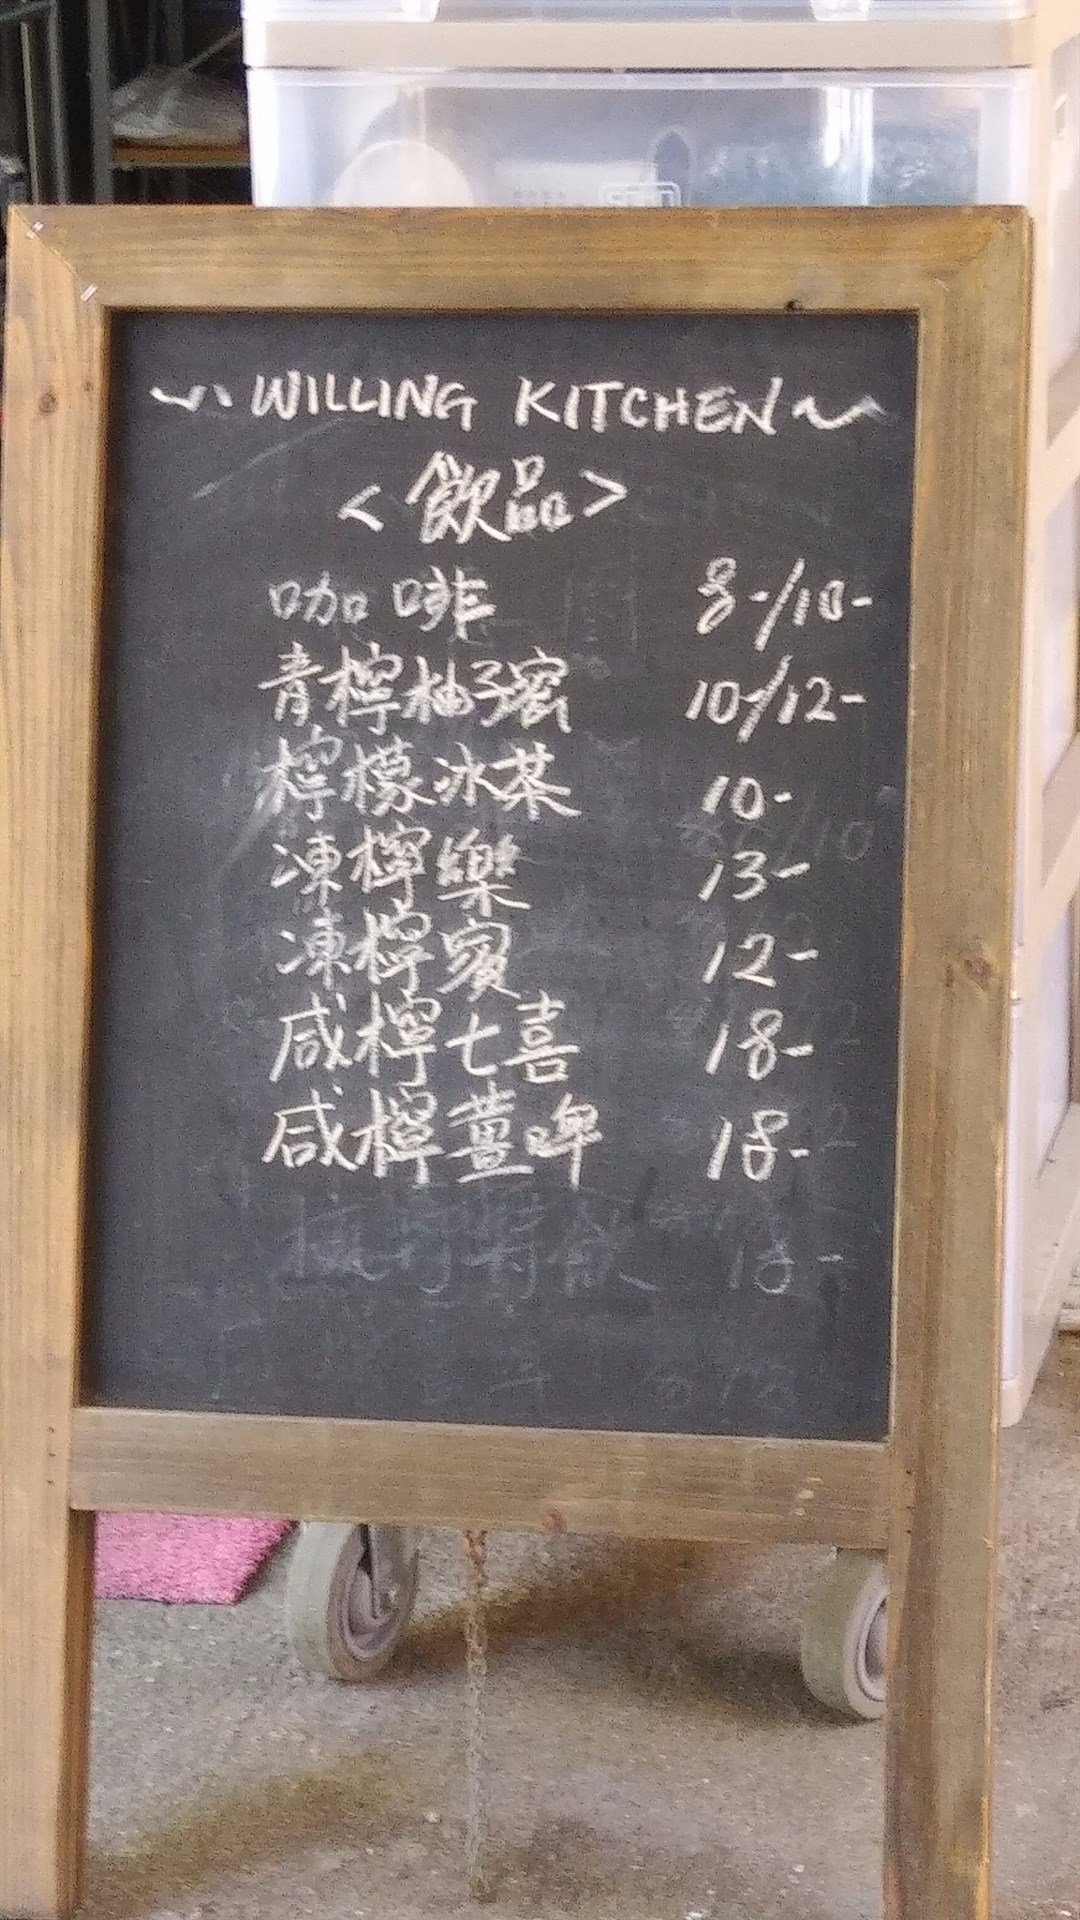 ~ WILLING KITCHEN ~
<飲品>
咖啡 8-/10-
青檸柚子蜜 10-/12-
檸檬冰茶 10-
凍檸樂 13-
凍檸賓 12-
咸檸七喜 18-
咸檸薑啤 18-
18-